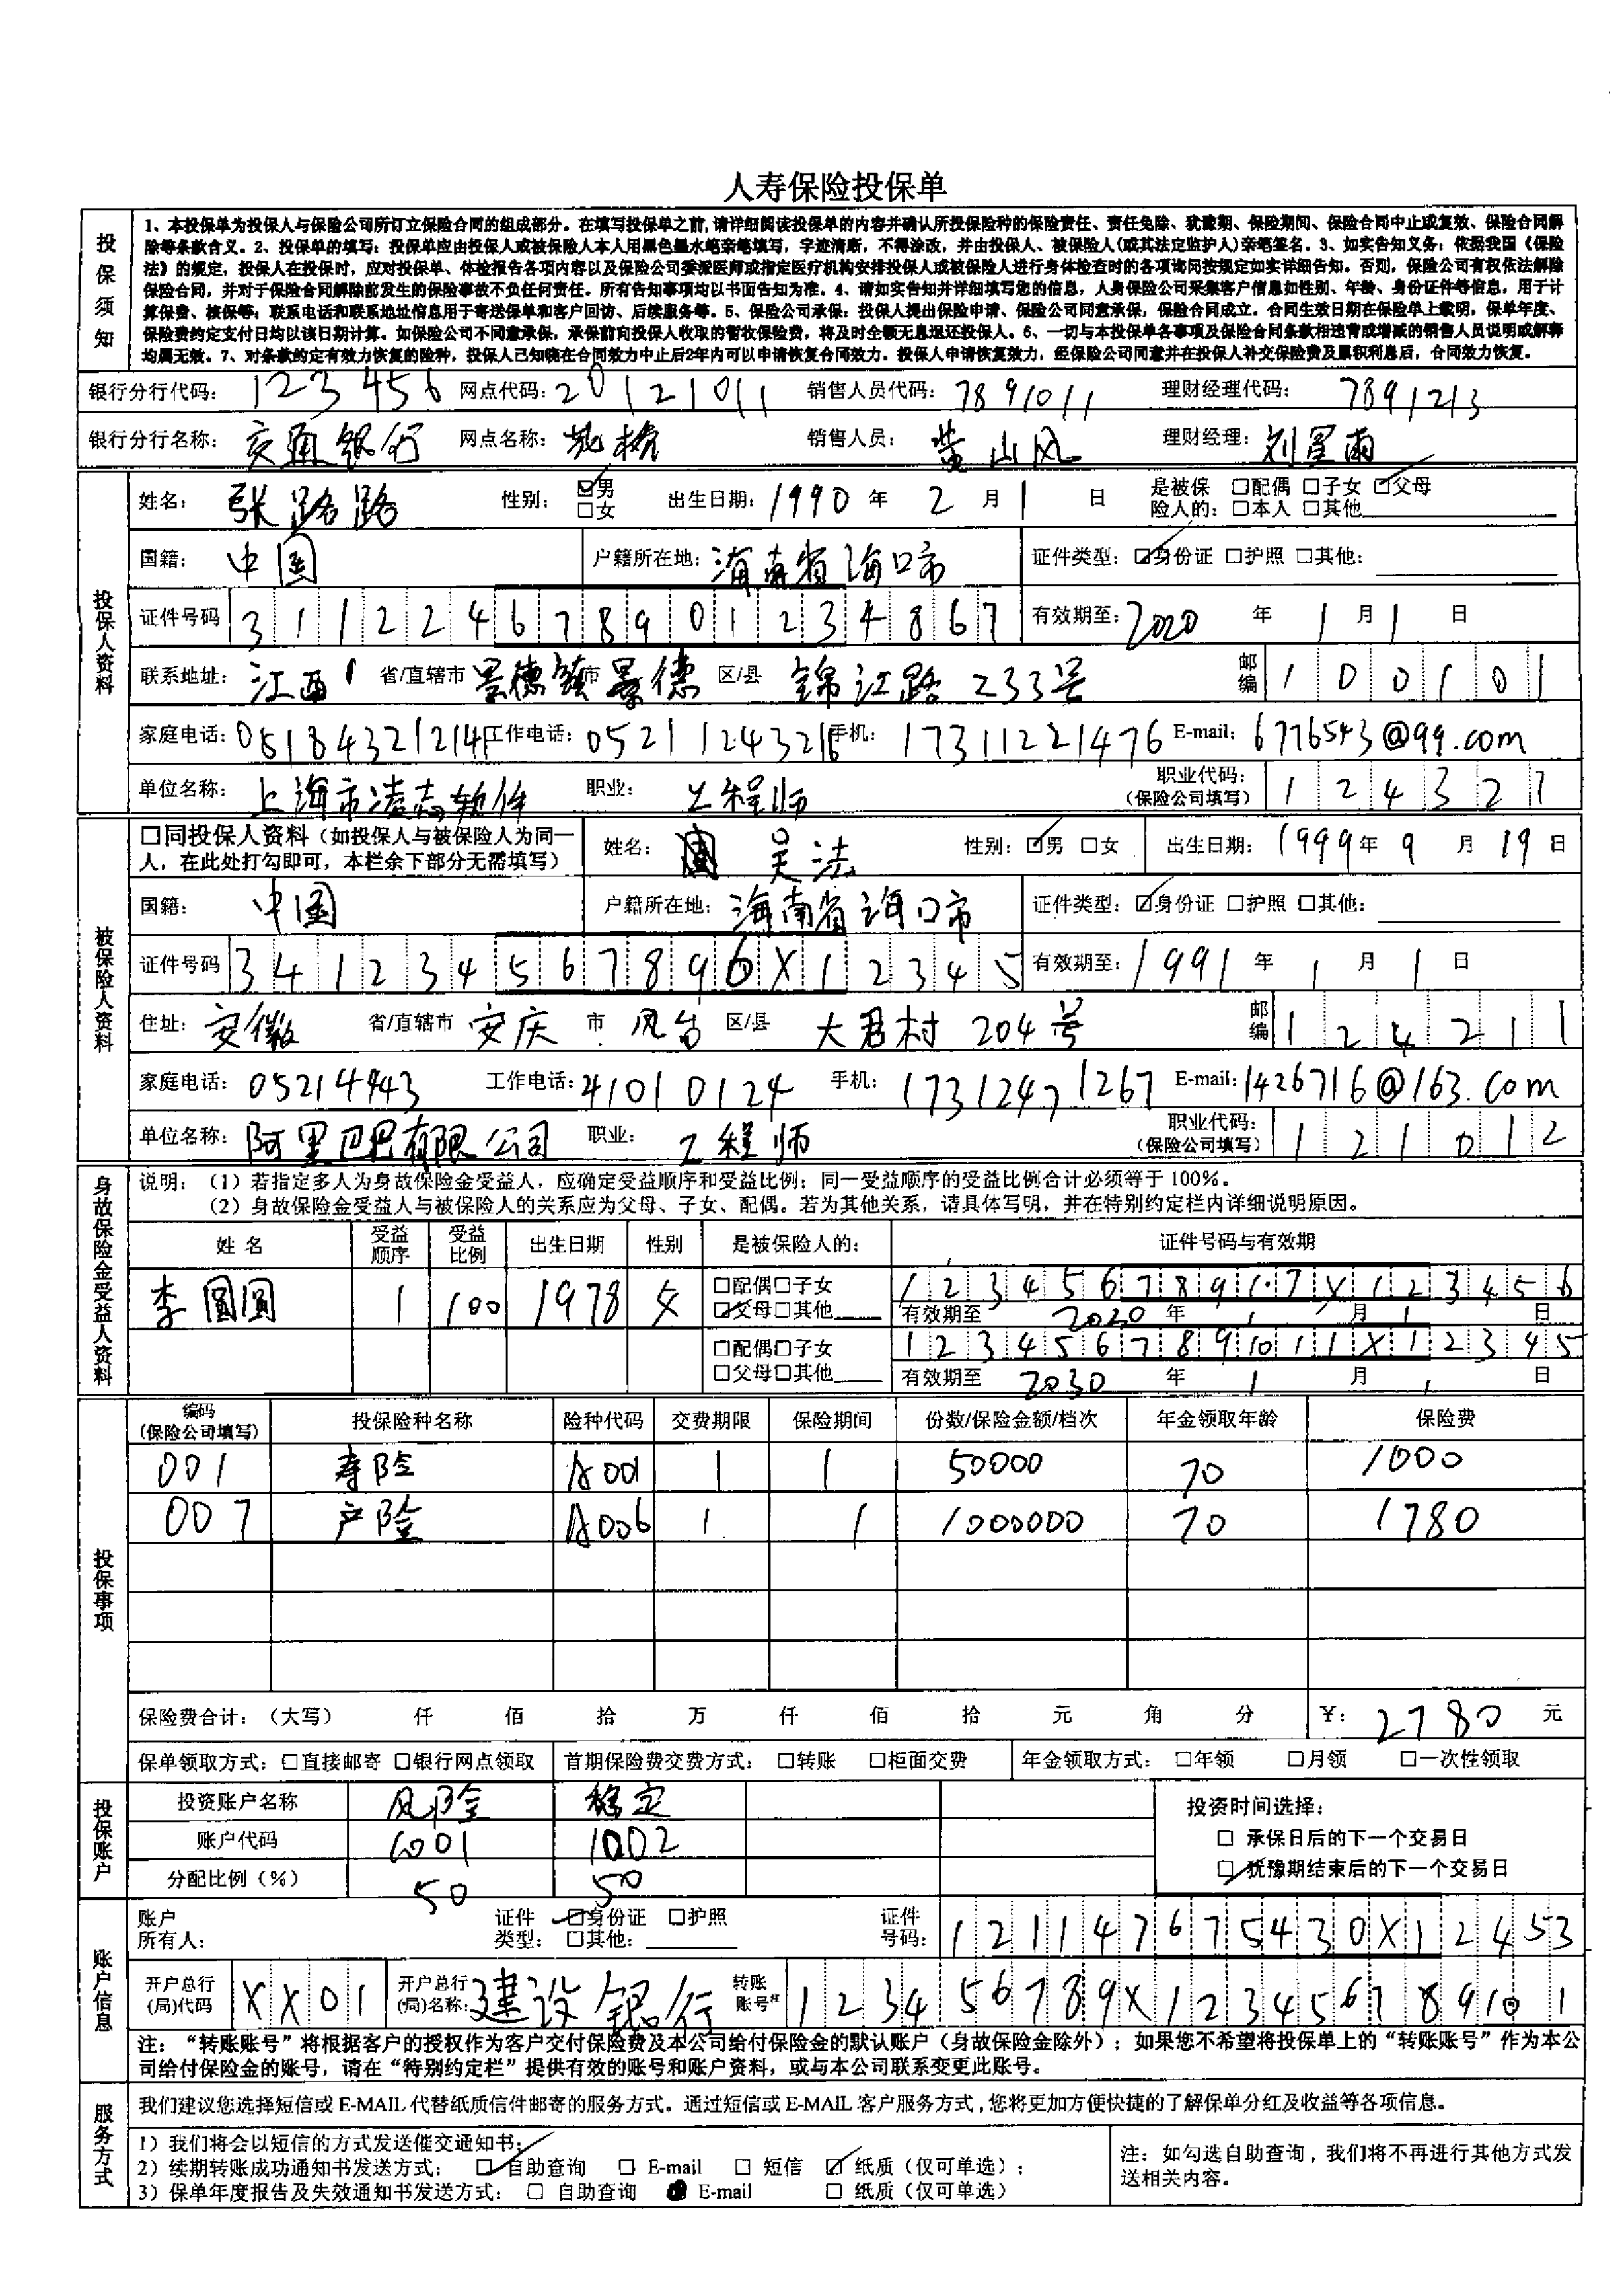 人寿保险投保单
投保须知
1、本投保单为投保人与保险公司所订立保险合同的组成部分。在填写投保单之前,请详细阅读投保单的内容并确认所投保险种的保险责任、责任免除、犹豫期、保险期间、保险合同中止或复效、保险合同解
除等条款含义。2、投保单的填写：投保单应由投保人或被保险人本人用黑色墨水笔亲笔填写，字迹清晰，不得涂改，并由投保人、被保险人(或其法定监护人)亲笔签名。3、如实告知义务：依据我国《保险
法》的规定，投保人在投保时，应对投保单、体检报告各项内容以及保险公司委派医师或指定医疗机构安排投保人或被保险人进行身体检查时的各项询问按规定如实详细告知。否则，保险公司有权依法解除
保险合同，并对于保险合同解除前发生的保险事故不负任何责任。所有告知事项均以书面告知为准。4、请如实告知并详细填写您的信息，人身保险公司采集客户信息如性别、年龄、身份证件等信息，用于计
算保费、核保等；联系电话和联系地址信息用于寄送保单和客户回访、后续服务等。5、保险公司承保：投保人提出保险申请、保险公司同意承保，保险合同成立。合同生效日期在保险单上载明，保单年度、
保险费约定支付日均以该日期计算。如保险公司不同意承保，承保前向投保人收取的暂收保险费，将及时全额无息退还投保人。6、一切与本投保单各事项及保险合同条款相违背或增减的销售人员说明或解释
均属无效。7、对条款约定有效力恢复的险种，投保人已知晓在合同效力中止后2年内可以申请恢复合同效力。投保人申请恢复效力，经保险公司同意并在投保人补交保险费及累积利息后，合同效力恢复。
银行分行代码： 123456 网点代码：20121011 销售人员代码：7891011 理财经理代码： 7891213
银行分行名称： 交通银行 网点名称： 销售人员： 黄山风 理财经理：刘星雨
投保人资料
姓名： 张路路 性别： ☑男 □女 出生日期：1990 年 2 月 1 日 是被保险人的： □配偶 □子女 ☑父母 □本人 □其他
国籍： 中国 户籍所在地：海南省海口市 证件类型：☑身份证 □护照 □其他：
证件号码 311224678901234867 有效期至：2020 年 1 月 1 日
联系地址： 江西 省/直辖市 景德镇 市 景德 区/县 锦江路 233号 邮编 100101
家庭电话：051843212141 工作电话：05211243216 手机： 17311221476 E-mail：6776543@qq.com
单位名称： 上海市凌志软件 职业： 工程师 职业代码：（保险公司填写） 124327
被保险人资料
□同投保人资料（如投保人与被保险人为同一人，在此处打勾即可，本栏余下部分无需填写） 姓名： 吴法 性别：☑男 □女 出生日期：1999年 9 月 19 日
国籍： 中国 户籍所在地：海南省海口市 证件类型：☑身份证 □护照 □其他：
证件号码 3412345678960X12345 有效期至：1991 年 1 月 1 日
住址：安徽 省/直辖市 安庆 市 凤台 区/县 大君村 204号 邮编 124211
家庭电话：05214443 工作电话：41010124 手机： 17312471267 E-mail：1426716@163.com
单位名称：阿里巴巴有限公司 职业： 工程师 职业代码：（保险公司填写） 121012
身故保险金受益人资料
说明：（1）若指定多人为身故保险金受益人，应确定受益顺序和受益比例；同一受益顺序的受益比例合计必须等于 100%。
（2）身故保险金受益人与被保险人的关系应为父母、子女、配偶。若为其他关系，请具体写明，并在特别约定栏内详细说明原因。
姓 名 受益顺序 受益比例 出生日期 性别 是被保险人的： 证件号码与有效期
李圆圆 1 100 1978 女 □配偶□子女 ☑父母□其他 12345678917X123456
有效期至 2020 年 1 月 1 日
□配偶□子女 □父母□其他 1234567891011X12345
有效期至 2030 年 1 月 1 日
投保事项
编码（保险公司填写） 投保险种名称 险种代码 交费期限 保险期间 份数/保险金额/档次 年金领取年龄 保险费
001 寿险 A001 1 1 50000 70 1000
007 产险 A006 1 1 1000000 70 1780
保险费合计：（大写） 仟 佰 拾 万 仟 佰 拾 元 角 分 ￥：2780 元
保单领取方式：□直接邮寄 □银行网点领取 首期保险费交费方式：□转账 □柜面交费 年金领取方式：□年领 □月领 □一次性领取
投保账户
投资账户名称 风险 稳定 投资时间选择：
账户代码 6001 1002 □ 承保日后的下一个交易日
分配比例（%） 50 50 ☑ 犹豫期结束后的下一个交易日
账户信息
账户所有人： 证件类型： ☑身份证 □护照 □其他： 证件号码： 121147675430X12453
开户总行(局)代码 XX01 开户总行(局)名称：建设银行 转账账号注 123456789X123456789101
注：“转账账号”将根据客户的授权作为客户交付保险费及本公司给付保险金的默认账户（身故保险金除外）；如果您不希望将投保单上的“转账账号”作为本公
司给付保险金的账号，请在“特别约定栏”提供有效的账号和账户资料，或与本公司联系变更此账号。
服务方式
我们建议您选择短信或 E-MAIL 代替纸质信件邮寄的服务方式。通过短信或 E-MAIL 客户服务方式，您将更加方便快捷的了解保单分红及收益等各项信息。
1）我们将会以短信的方式发送催交通知书；
2）续期转账成功通知书发送方式： ☑ 自助查询 □ E-mail □ 短信 ☑ 纸质（仅可单选）；
3）保单年度报告及失效通知书发送方式：□ 自助查询 ■ E-mail □ 纸质（仅可单选）
注：如勾选自助查询，我们将不再进行其他方式发
送相关内容。